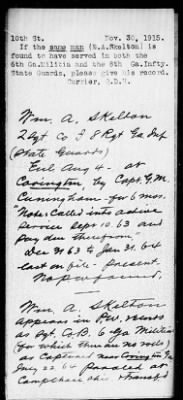 10th St.     Nov. 30, 1915.
If the same man (W.A.Skelton) is
found to have served in both the
6th Ga.Militia and the 8th Ga.Infty.
State Guards, please give his record.
Currier, R.D.V.
Wm. A. Skelton
2 Sgt Co 8 Rgt Ga Inf
(State Guards)
Enl Aug 4 - at
Covington by Capt. G.M.
Cuningham - for 6 mos.
"Note: Called into active
service Sept 10. 63 and
pay due therefrom
Dec 31 63 to Jan 31. 64
last on file - present.
No p w found.
Wm. A. Skelton
appears in P.W. records
as Sgt. Co B. 6 Ga Militia
(for which there are no rolls)
as captured near Covington Ga
July 22 64 Paroled at
Camp Chase Ohio & transf'd